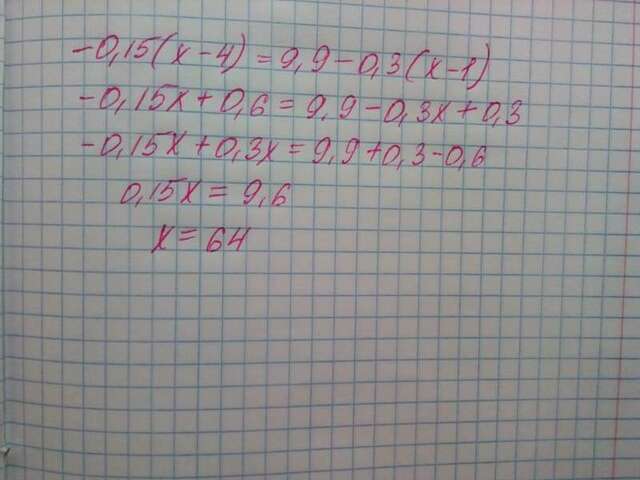 -0,15(x-4)=9,9-0,3(x-1)
-0,15x+0,6=9,9-0,3x+0,3
-0,15x+0,3x=9,9+0,3-0,6
0,15x=9,6
x=64